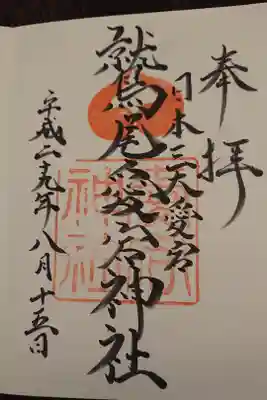 奉拝
日本三大愛宕
鷲尾愛宕神社
平成二十九年八月十五日
神社